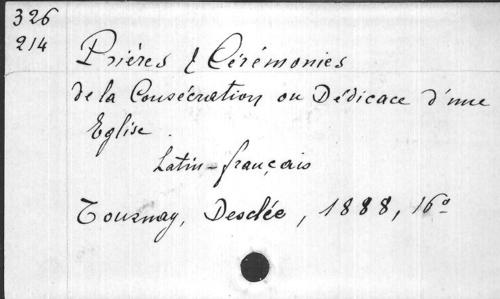 326
214
Prières & Cérémonies
de la Consécration ou Dédicace d'une
Eglise.
Latin-français
Tournay, Desclée, 1888, 16º